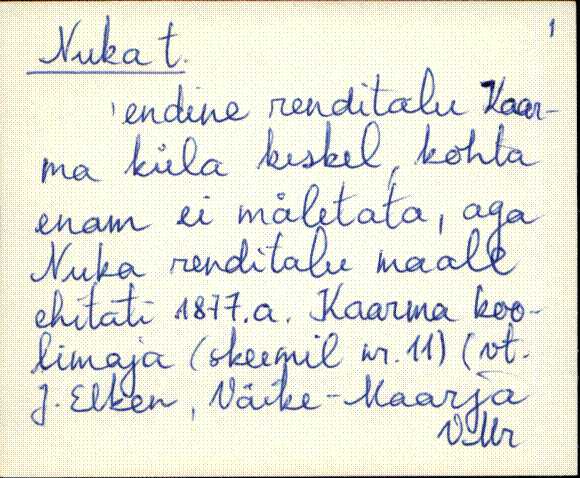 1
Nuka t.
endine renditalu Kaar-
ma küla keskel, kohta
enam ei mäletata, aga
Nuka renditalu maale
ehitati 1877.a. Kaarma koo-
limaja (skeemil nr. 11) (vt.
J. Elken, Väike-Maarja
VMr